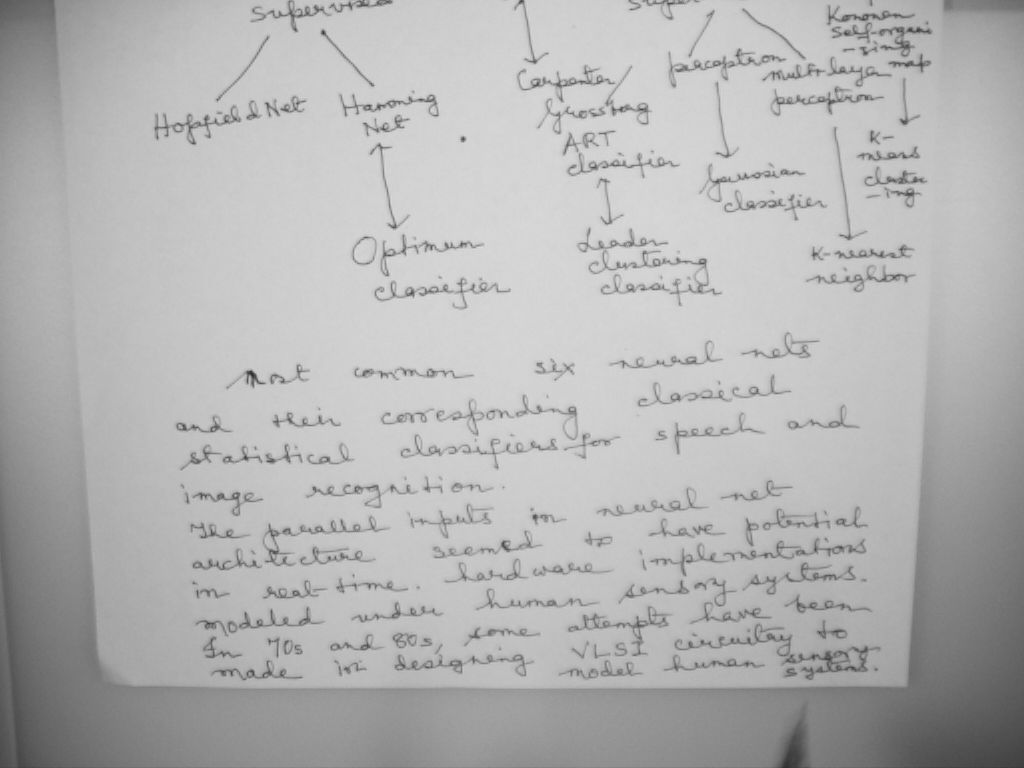 Supervised
Hopfield Net
Hamming
Net
Optimum
classifier
Carpenter
Grossberg
ART
classifier
Leader
clustering
classifier
perceptron
Gaussian
classifier
multi-layer
perceptron
K-nearest
neighbor
Kononen
self-organi
-zing
map
K-
means
cluster
-ing
Most common six neural nets
and their corresponding classical
statistical classifiers for speech and
image recognition.
The parallel inputs in neural net
architecture seemed to have potential
in real-time. hardware implementations
modeled under human sensory systems.
In 70s and 80s, some attempts have been
made in designing VLSI circuitry to
model human sensory
systems.